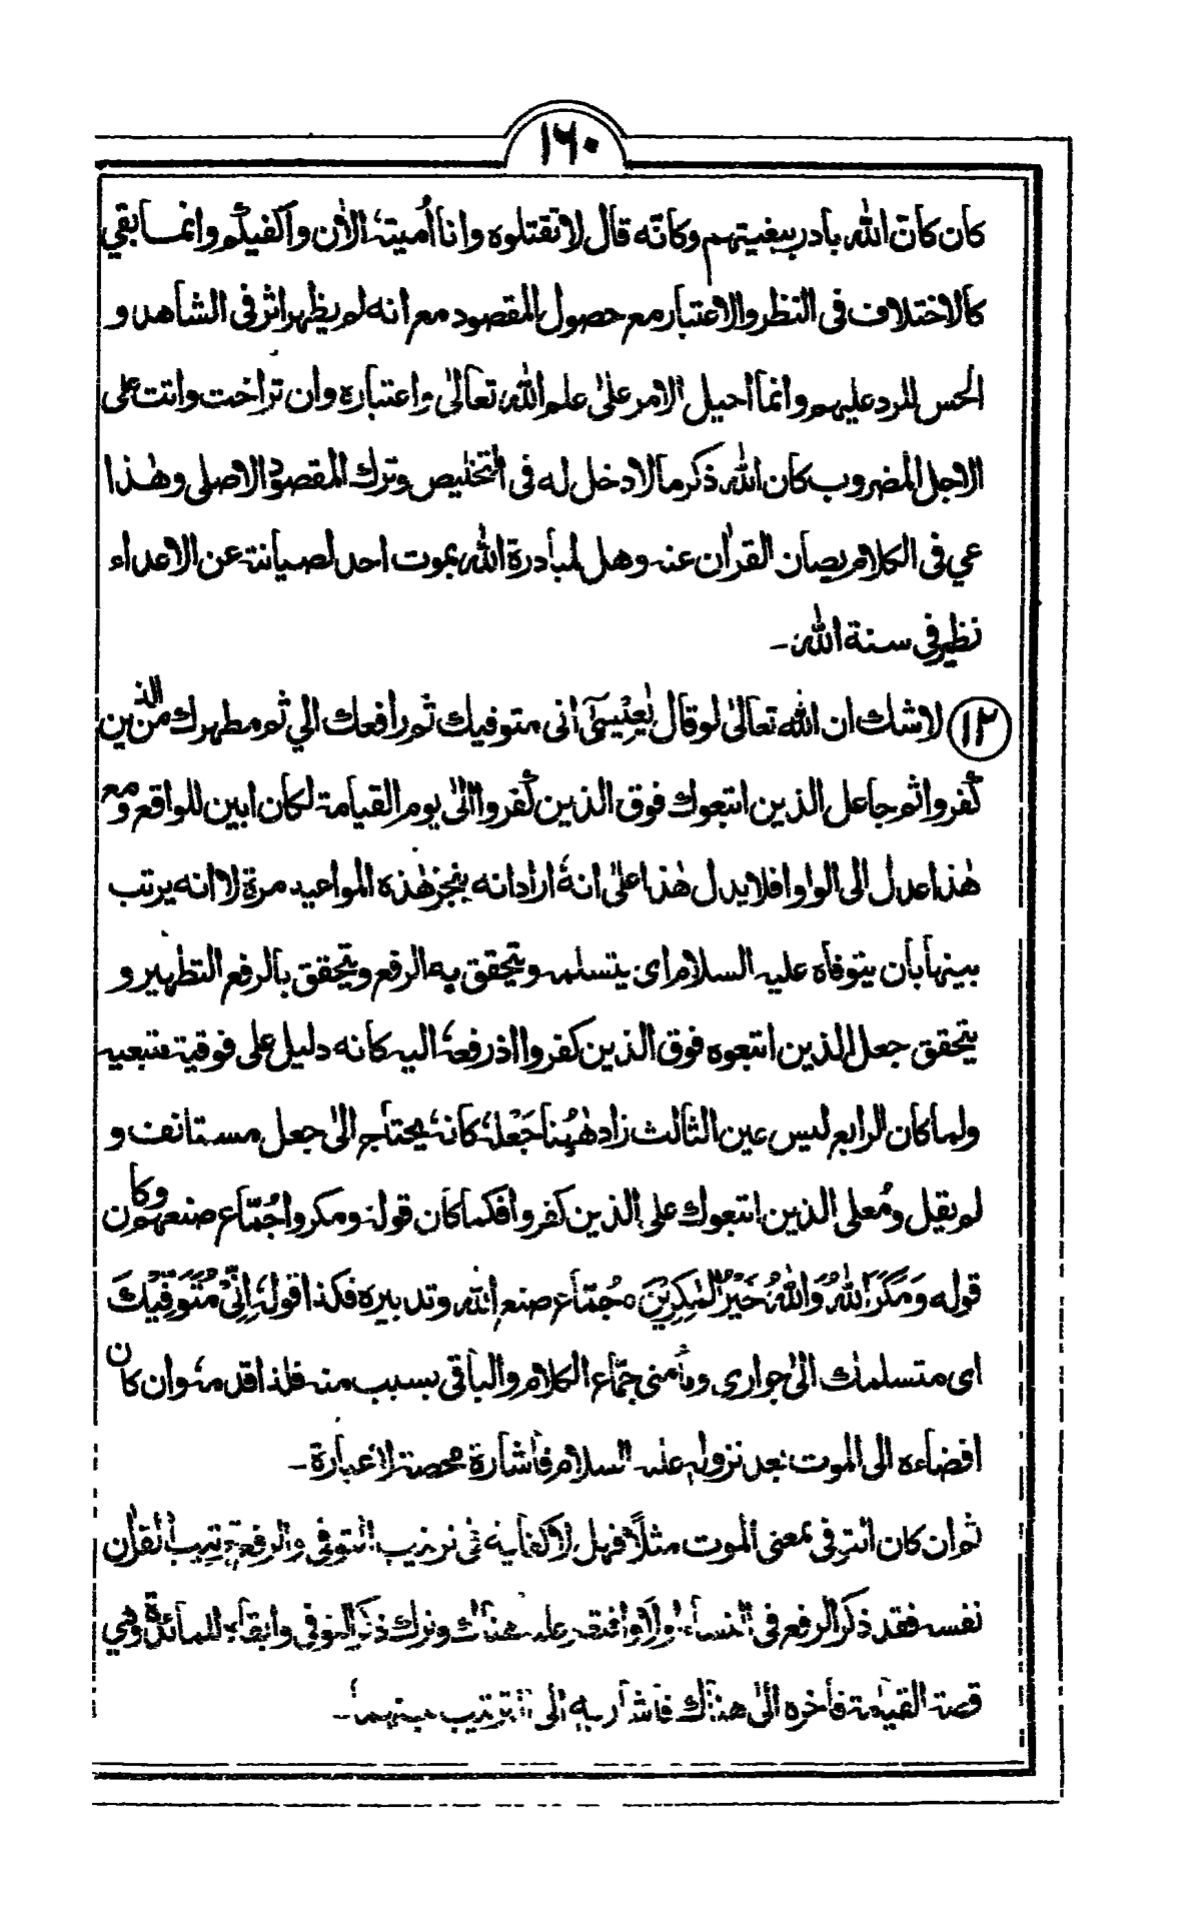 ١٦٠
كان كان الله بادر ببغيتهم وكانه قال لا تقتلوه وانا اُميتهٗ الاٰن واكفيكم وانما بقي
كالاختلاف فى النظر والاعتبار مع حصول المقصود مع انه لم يظهر اثر فى الشاهد و
الحس للرد عليهم وانما احيل الامر علىٰ علم الله تعالىٰ واعتباره وان تراخت واتت على
الاجل المضروب كان الله ذكر ما لا دخل له فى التخليص وترك المقصود الاصلى وهٰذا
عي فى الكلام يصان القراٰن عنه وهل لمبادرة الله بموت احد لصيانته عن الاعداء
نظير فى سنة الله۔
(١٢) لا شك ان الله تعالىٰ لو قال يٰعِيْسىٰٓ انى متوفيك ثم رافعك الي ثم مطهرك من الذين
كفروا ثم جاعل الذين اتبعوك فوق الذين كفروا الىٰ يوم القيامة لكان ابين للواقع ومع
هٰذا عدل الى الواو افلا يدل هٰذا علىٰ انهٗ اراد انه ينجز هٰذه المواعيد مرة لا انه يرتب
بينها بان يتوفاه عليه السلام اى يتسلمه ويتحقق به الرفع ويتحقق بالرفع التطهير و
يتحقق جعل الذين اتبعوه فوق الذين كفروا اذ رفعهٗ اليه كانه دليل على فوقية متبعيه
ولما كان الرابع ليس عين الثالث زاد هٰهُنا جَعْلهٗ كانهٗ يحتاج الىٰ جعل مستانف و
لم يقل ومُعلى الذين اتبعوك على الذين كفروا فكما كان قولهٗ ومكروا جُمّاع صنعهم وكان
قوله وَمَكَرَ اللّٰهُ وَاللّٰهُ خَيْرُ الْمٰكِرِيْنَ ه جُمّاع صنع الله وتدبيره فكذا قولهٗ اِنِّىْ مُتَوَفِّيْكَ
اى متسلمك الىٰ جوارى ومأمنى جمّاع الكلام والباقى بسبب منه فلذا قدمهٗ وان كان
افضاءه الى الموت بعد نزوله عليه السلام فاشارة محصة لا عبارة۔
ثم ان كان التوفى بمعنى الموت مثلاً فهل لا كفاية فى ترتيب التوفى والرفع ترتيب القراٰن
نفسه فقد ذكر الرفع فى النساء اولا هناك وترك ذكر التوفى وابقاه للمائدة وفي
قصة القيٰمة فاخره الىٰ هناك فاشار به الى الترتيب بينهما۔